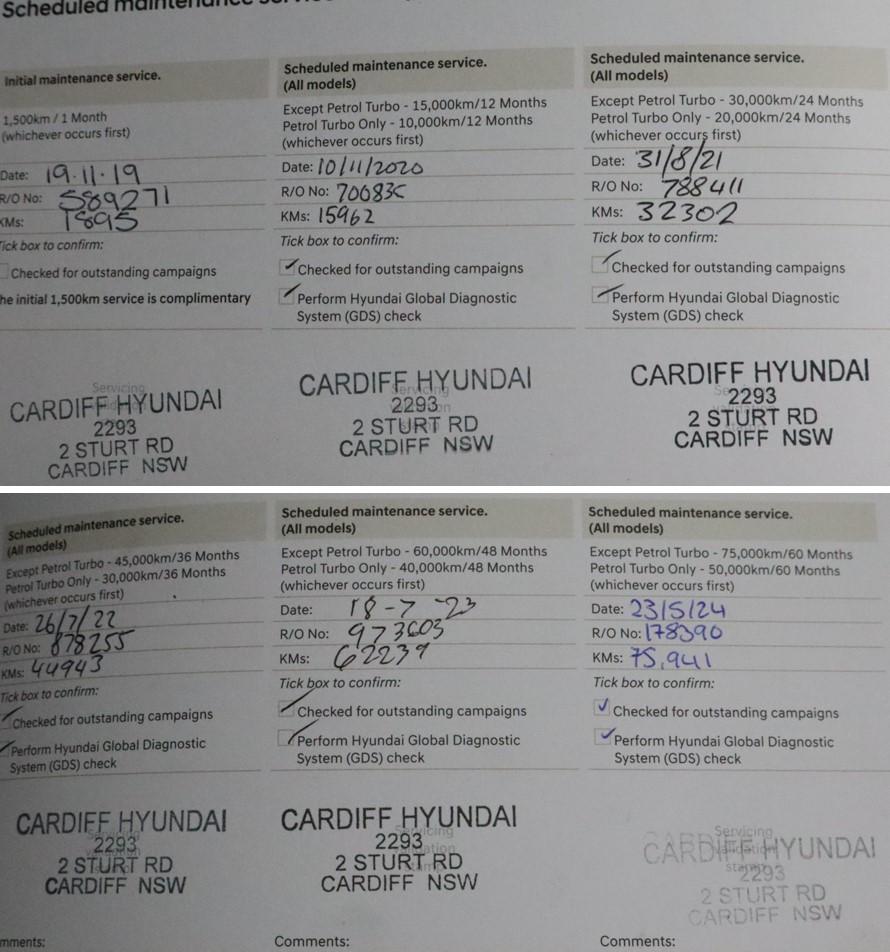 Scheduled maintenance
Initial maintenance service.
1,500km / 1 Month
(whichever occurs first)
Date: 19.11.19
R/O No: 589271
KMs: 1895
Tick box to confirm:
Checked for outstanding campaigns
he initial 1,500km service is complimentary
Servicing
CARDIFF HYUNDAI
2293
2 STURT RD
CARDIFF NSW
Scheduled maintenance service.
(All models)
Except Petrol Turbo - 15,000km/12 Months
Petrol Turbo Only - 10,000km/12 Months
(whichever occurs first)
Date: 10/11/2020
R/O No:
KMs: 15962
Tick box to confirm:
Checked for outstanding campaigns
Perform Hyundai Global Diagnostic
System (GDS) check
Servicing
CARDIFF HYUNDAI
2293
2 STURT RD
CARDIFF NSW
Scheduled maintenance service.
(All models)
Except Petrol Turbo - 30,000km/24 Months
Petrol Turbo Only - 20,000km/24 Months
(whichever occurs first)
Date: 31/8/21
R/O No: 788411
KMs: 32302
Tick box to confirm:
Checked for outstanding campaigns
Perform Hyundai Global Diagnostic
System (GDS) check
CARDIFF HYUNDAI
2293
2 STURT RD
CARDIFF NSW
Scheduled maintenance service.
(All models)
Except Petrol Turbo - 45,000km/36 Months
Petrol Turbo Only - 30,000km/36 Months
(whichever occurs first)
Date: 26/7/22
R/O No: 878255
KMs: 44943
Tick box to confirm:
Checked for outstanding campaigns
Perform Hyundai Global Diagnostic
System (GDS) check
CARDIFF HYUNDAI
2293
2 STURT RD
CARDIFF NSW
mments:
Scheduled maintenance service.
(All models)
Except Petrol Turbo - 60,000km/48 Months
Petrol Turbo Only - 40,000km/48 Months
(whichever occurs first)
Date: 18-7-23
R/O No: 973603
KMs: 62239
Tick box to confirm:
Checked for outstanding campaigns
Perform Hyundai Global Diagnostic
System (GDS) check
CARDIFF HYUNDAI
2293
2 STURT RD
CARDIFF NSW
Comments:
Scheduled maintenance service.
(All models)
Except Petrol Turbo - 75,000km/60 Months
Petrol Turbo Only - 50,000km/60 Months
(whichever occurs first)
Date: 23/5/24
R/O No: 178390
KMs: 75,941
Tick box to confirm:
Checked for outstanding campaigns
Perform Hyundai Global Diagnostic
System (GDS) check
Servicing
CARDIFF HYUNDAI
2293
2 STURT RD
CARDIFF NSW
Comments: